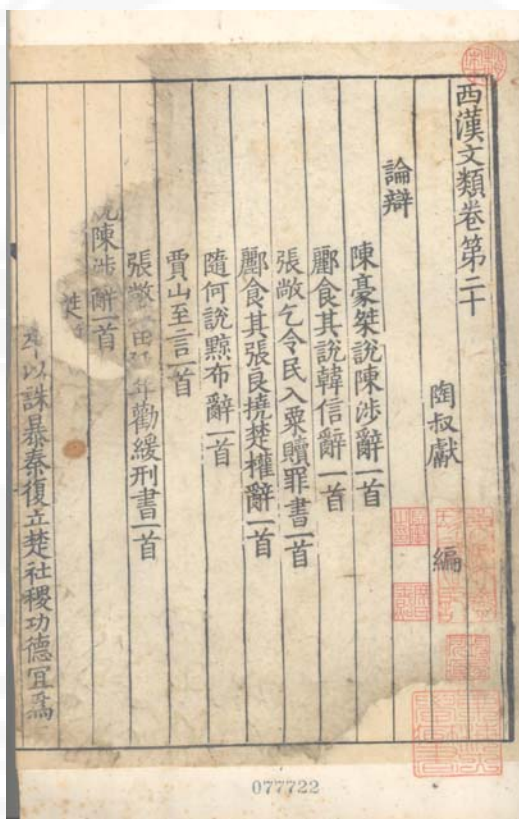 西漢文類卷第二十
陶叔獻 編
論辯
陳豪桀說陳涉辭一首
酈食其說韓信辭一首
張敞乞令民入粟贖罪書一首
酈食其張良撓楚權辭一首
隨何說黥布辭一首
賈山至言一首
張敞 年勸緩刑書一首
說陳涉辭一首
以誅暴秦復立楚社稷功德宜爲
077722